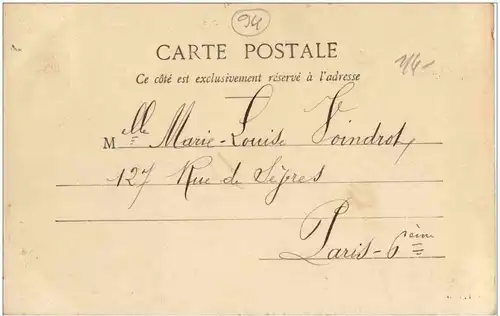 94
CARTE POSTALE
14-
Ce côté est exclusivement réservé à l'adresse
Melle Marie-Louise Voindrot,
127 Rue de Sèvres
Paris-6ème